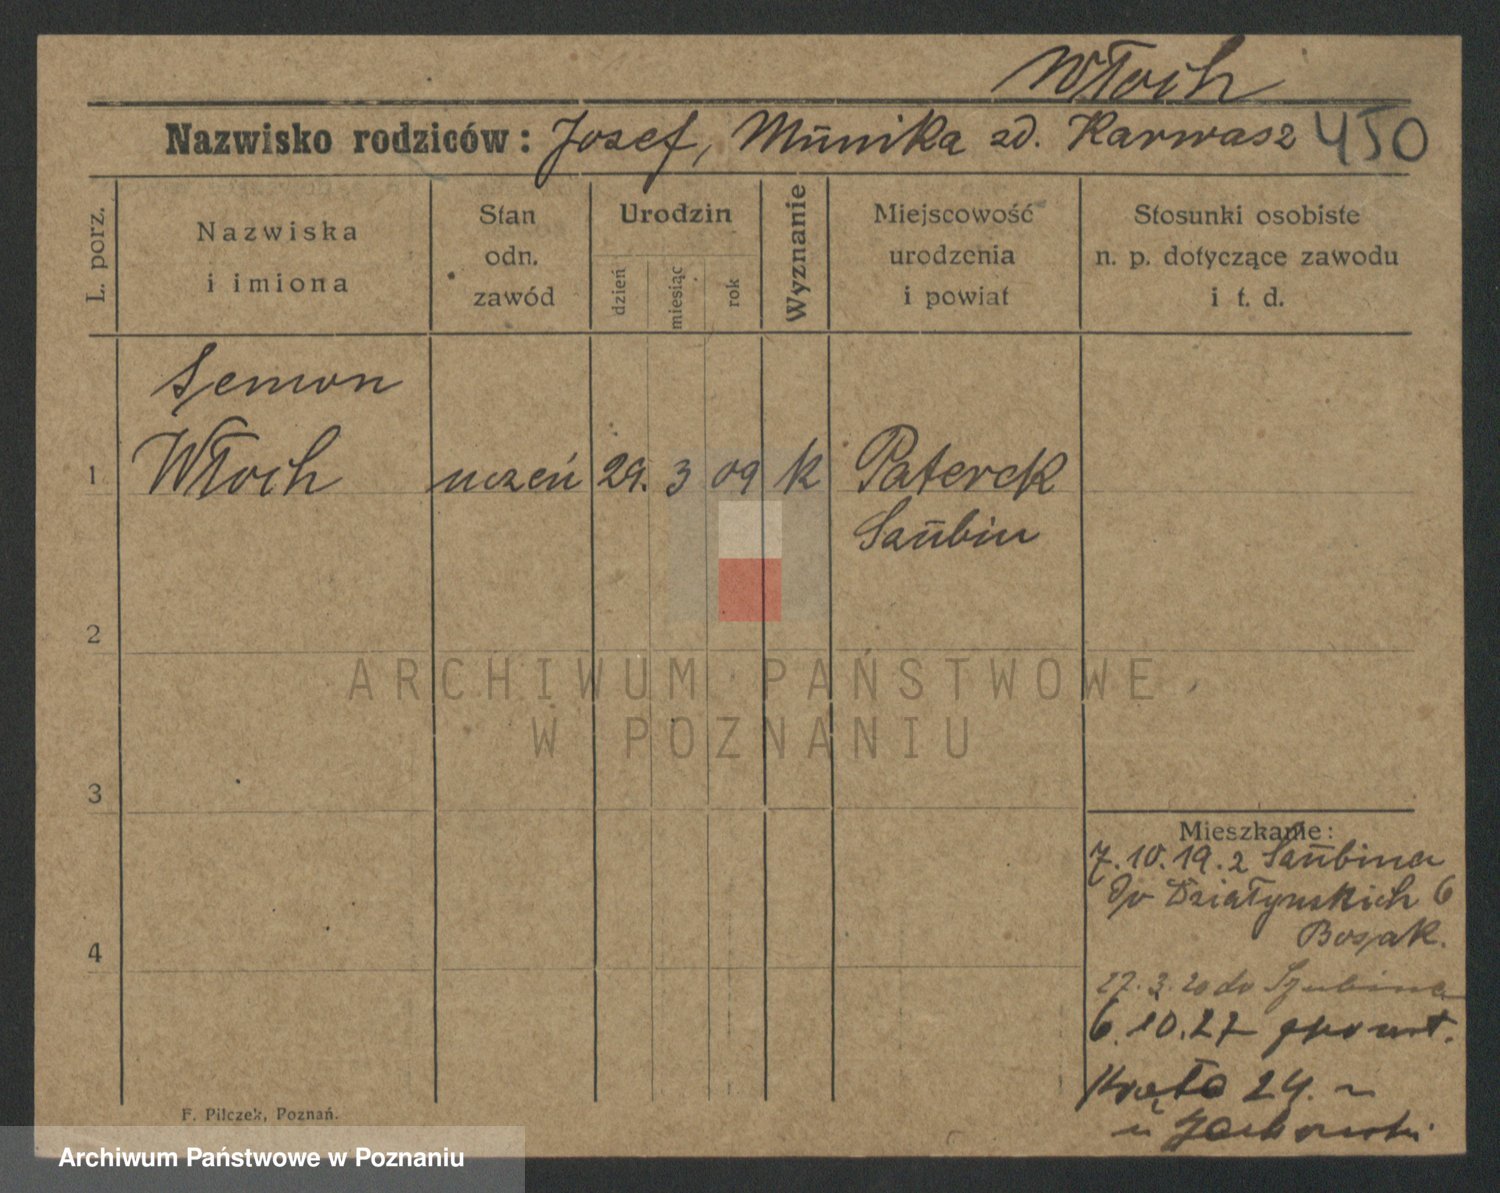 Włoch
Nazwisko rodziców: Josef, Münika zd. Karwasz 450
L. porz.
Nazwiska
i imiona
Stan
odn.
zawód
Urodzin
dzień
miesiąc
rok
Wyznanie
Miejscowość
urodzenia
i powiat
Stosunki osobiste
n. p. dotyczące zawodu
i t. d.
Semon
1 Włoch uczeń 29. 3 09 k Paterek
Saübin
2
ARCHIWUM PAŃSTWOWE
W POZNANIU
3
Mieszkanie:
7.10.19. z Saübina
Działyńskich 6
4
Bosak.
27.3.20 do Szubina
6.10.27
24.
F. Pilczek, Poznań.
Archiwum Państwowe w Poznaniu